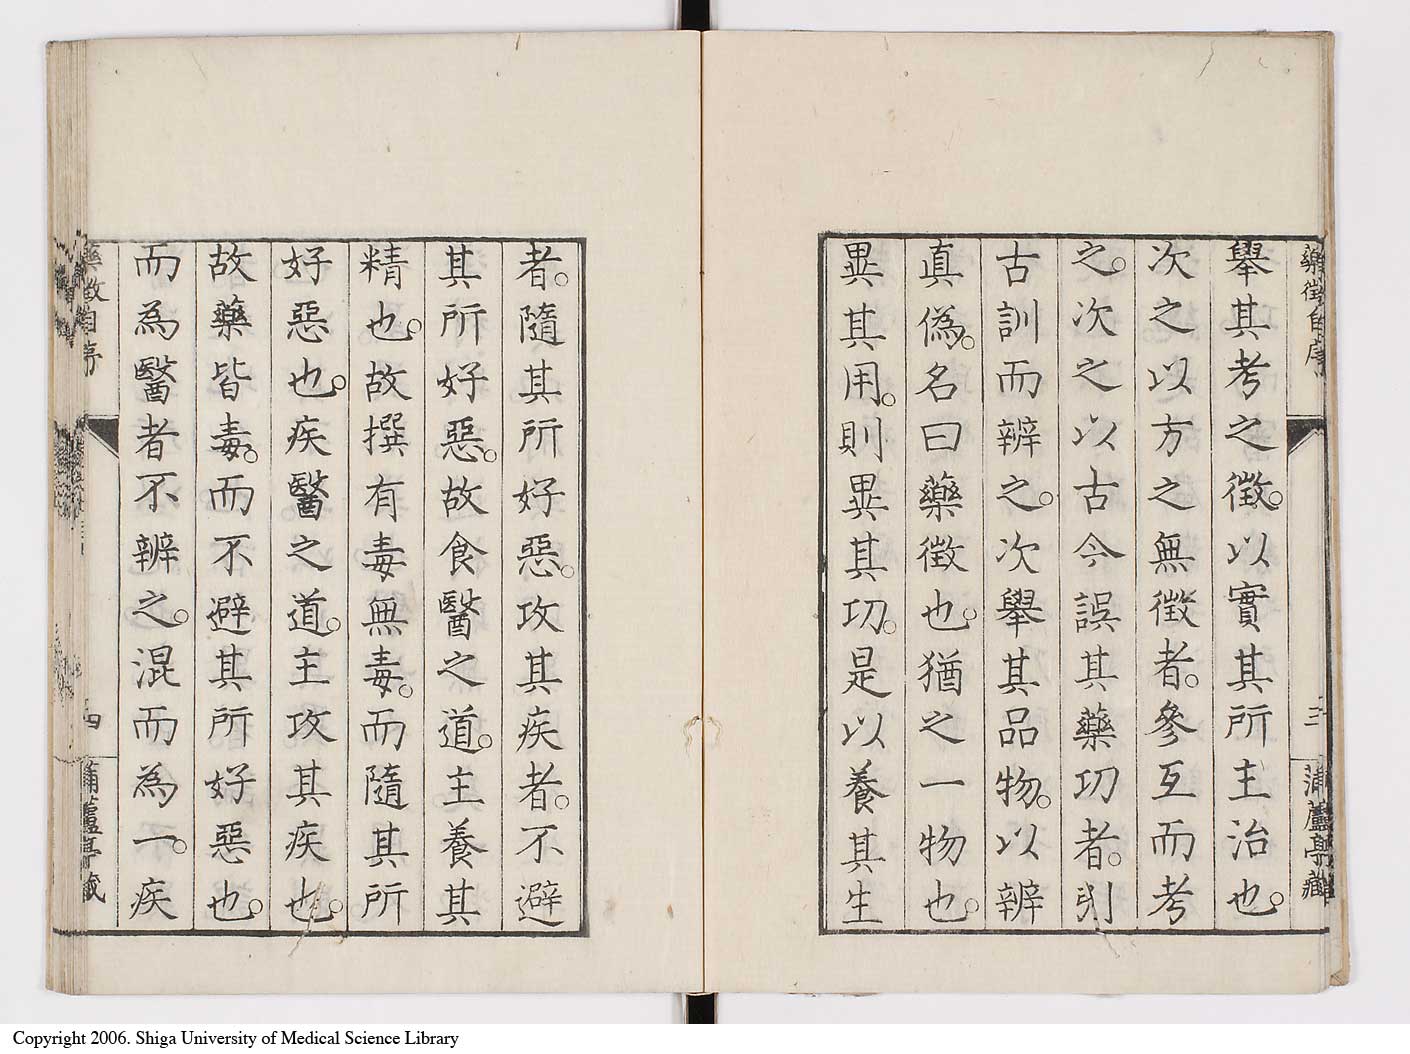 藥徴自序
三
蒲蘆亭藏
舉其考之徴。以實其所主治也。
次之以方之無徴者。參互而考
之。次之以古今誤其藥功者。引
古訓而辨之。次舉其品物。以辨
真偽。名曰藥徴也。猶之一物也。
異其用。則異其功。是以養其生
者。隨其所好惡。攻其疾者。不避
其所好惡。故食醫之道。主養其
精也。故撰有毒無毒。而隨其所
好惡也。疾醫之道。主攻其疾也。
故藥皆毒。而不避其所好惡也。
而為醫者不辨之。混而為一。疾
藥徴自序
四
蒲蘆亭藏
Copyright 2006. Shiga University of Medical Science Library